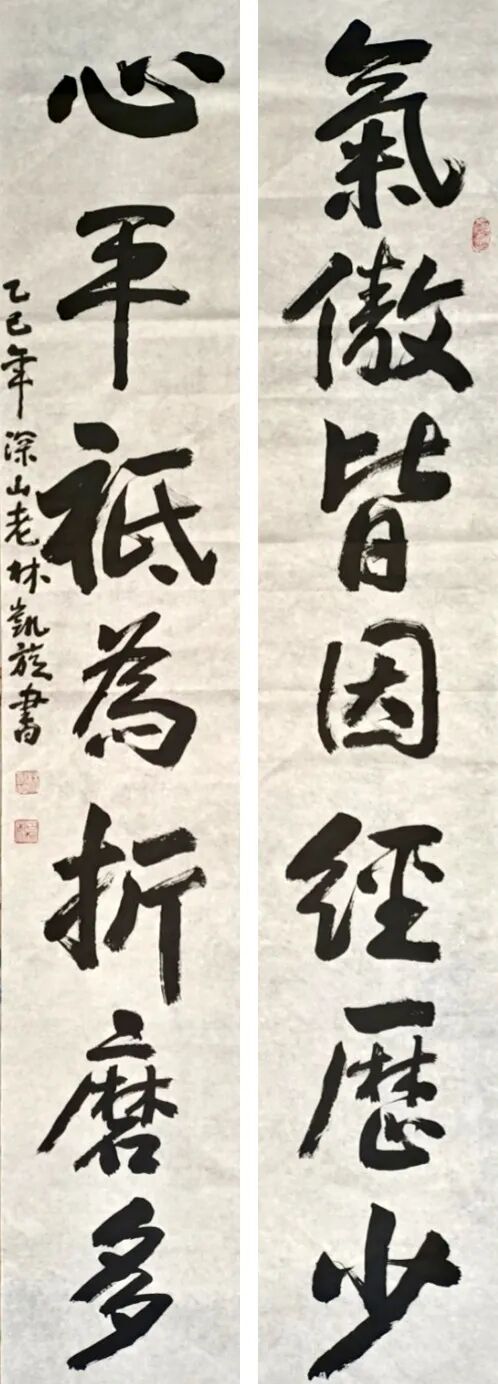 氣傲皆因經歷少
心平祗為折磨多
乙巳年深山老林凱旋書